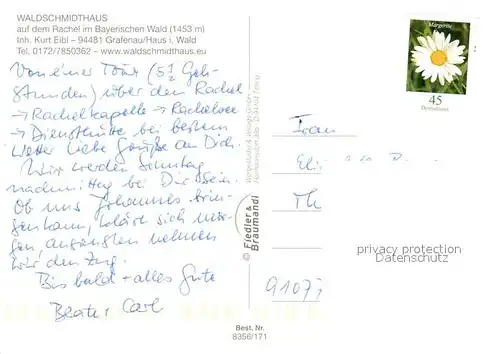 WALDSCHMIDTHAUS
auf dem Rachel im Bayerischen Wald (1453 m)
Inh. Kurt Eibl – 94481 Grafenau/Haus i. Wald
Tel. 0172/7850362 – www.waldschmidthaus.eu
Von einer Tour (5 1/2 Geh-
stunden) über den Rachel
→ Rachelkapelle → Rachelsee
→ Diensthütte bei bestem
Wetter liebe Grüße an Dich.
Wir werden Sonntag
nachmittag bei Dir sein.
Ob uns Johannes brin-
gen kann, klärt sich mor-
gen, ansonsten nehmen
wir den Zug.
Bis bald + alles Gute
Beate + Carl
© Fiedler & Braumandl
Margerite
45
Deutschland
Frau
privacy protection
Datenschutz
Best. Nr.
8356/171